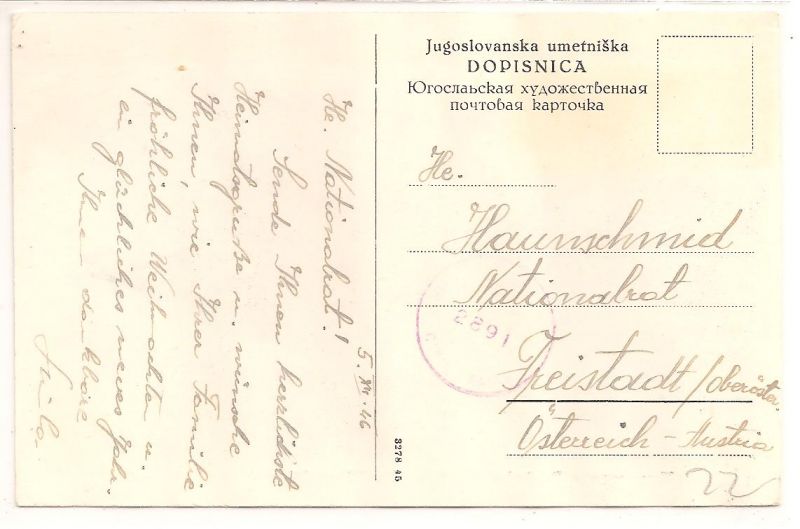 Jugoslovanska umetniška
DOPISNICA
Югославьская художественная
почтовая карточка
He.
Haunschmid
Nationalrat
2891
Freistadt/oberöster.
Österreich - Austria
22
3278 45
5. XII. 46
He. Nationalrat!
Sende Ihnen herzlichste
Heimatgrüße u. wünsche
Ihnen, wie Ihrer Familie
fröhliche Weihnachten u.
ein glückliches neues Jahr.
Ihre dankbare